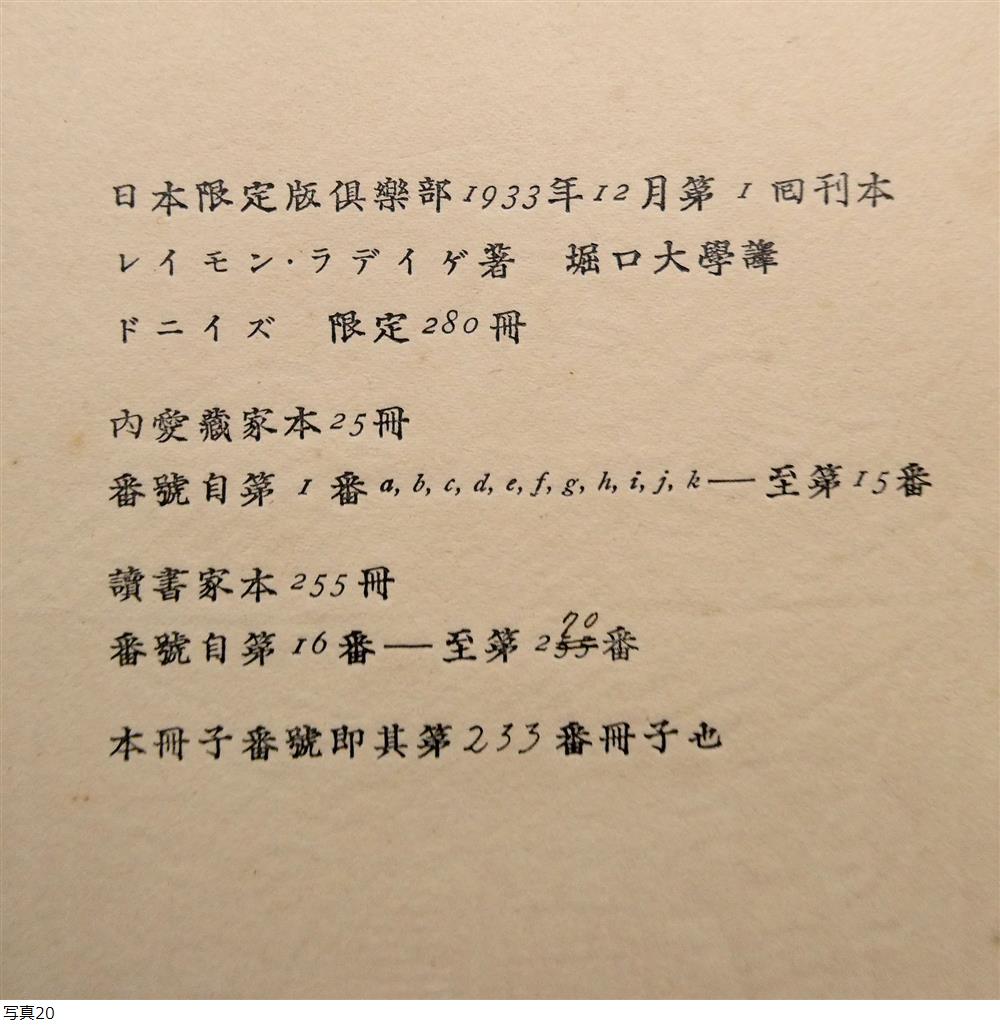 日本限定版俱樂部1933年12月第1回刊本
レイモン・ラデイゲ著　堀口大學譯
ドニイズ　限定280冊
內愛藏家本25冊
番號自第1番a, b, c, d, e, f, g, h, i, j, k──至第15番
讀書家本255冊
番號自第16番──至第255番
70
本冊子番號即其第233番冊子也
写真20